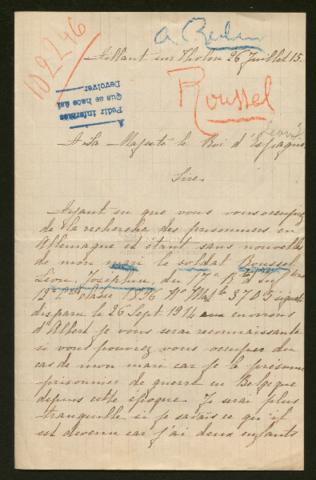 a Berlin
102246
Aillant sur Tholon 26 Juillet 15.
Pedir informes
que se hace así
Devolver
Roussel
Léon
A Sa Majesté le Roi d'Espagne
Sire,
Ayant su que vous vous occupez
de la recherche des prisonniers en
Allemagne et étant sans nouvelle
de mon mari le soldat Roussel
Léon Josephin, du
classe 1896 N° Mle 3705 signalé
disparu le 26 Sept 1914 aux environs
d'Albert je vous serai reconnaissante
si vous pouviez vous occuper du
cas de mon mari car je le présume
prisonnier de guerre en Belgique
depuis cette époque. Je serai plus
tranquille si je savais ce qu'il
est devenu car j'ai deux enfants